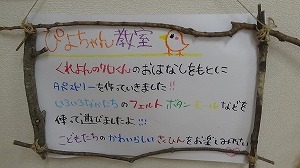 ぴよちゃん教室
くれよんのくろくんのおはなしをもとに
タペストリーを作っていきました!!
いろいろなかたちのフェルト ボタン などを
使って遊びましたよ!!!
こどもたちのかわいらしいさくひんをお楽しみ下さい